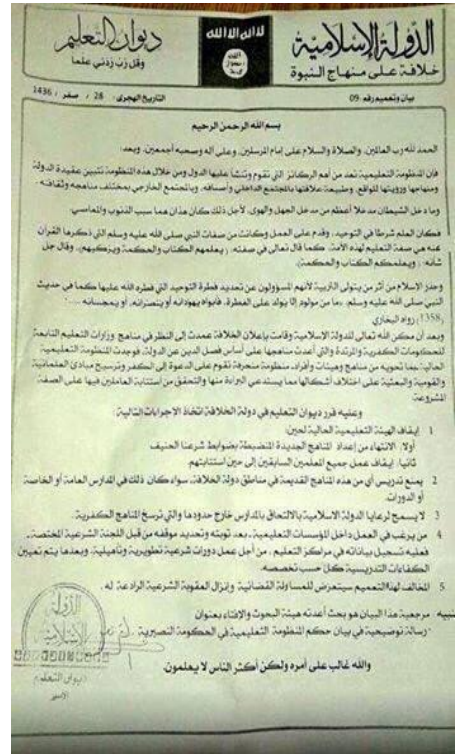 الدولة الإسلامية
خلافة على منهاج النبوة
لا إله إلا الله
الله
رسول
محمد
ديوان التعليم
وقل رب زدني علما
بيان وتعميم رقم: 09
التاريخ الهجري: 28 / صفر / 1436
بسم الله الرحمن الرحيم
الحمد لله رب العالمين، والصلاة والسلام على إمام المرسلين، وعلى آله وصحبه أجمعين، وبعد:
فإن المنظومة التعليمية تعد من أهم الركائز التي تقوم وتنشأ عليها الدول ومن خلال هذه المنظومة تتبين عقيدة الدولة
ومنهاجها ورؤيتها للواقع، وطبيعة علاقتها بالمجتمع الداخلي وأصنافه، وبالمجتمع الخارجي بمختلف مناهجه وثقافته.
وما دخل الشيطان مدخلا أعظم من مدخل الجهل والهوى، لأجل ذلك كان هذان هما سبب الذنوب والمعاصي.
فكان العلم شرطا في التوحيد، وقدم على العمل وكانت من صفات النبي صلى الله عليه وسلم التي ذكرها القرآن
عنه هي صفة التعليم لهذه الأمة، كما قال تعالى في صفته: (يعلمهم الكتاب والحكمة ويزكيهم)، وقال جل
شأنه: (ويعلمكم الكتاب والحكمة).
وحذر الإسلام من أثر من يتولى التربية لأنهم المسؤولون عن تحديد فطرة التوحيد التي فطره الله عليها كما في حديث
النبي صلى الله عليه وسلم: (ما من مولود إلا يولد على الفطرة، فأبواه يهودانه أو ينصرانه، أو يمجسانه ....)
(1358) رواه البخاري
وبعد أن مكن الله تعالى للدولة الإسلامية وقامت بإعلان الخلافة عمدت إلى النظر في مناهج وزارات التعليم التابعة
للحكومات الكفرية والمرتدة والتي أعدت مناهجها على أساس فصل الدين عن الدولة، فوجدت المنظومة التعليمية
الحالية بما تحويه من مناهج وهيئات وأفراد، منظومة منحرفة تقوم على الدعوة إلى الكفر وترسيخ مبادئ العلمانية
والقومية والبعثية على اختلاف أشكالها مما يستدعي البراءة منها والتحقق من استتابة العاملين فيها على الصفة
المشروعة.
وعليه قرر ديوان التعليم في دولة الخلافة اتخاذ الإجراءات التالية:
1 إيقاف الهيئة التعليمية الحالية لحين:
أولا: الانتهاء من إعداد المناهج الجديدة المنضبطة بضوابط شرعنا الحنيف
ثانيا: إيقاف عمل جميع المعلمين السابقين إلى حين استتابتهم.
2 يمنع تدريس أي من هذه المناهج القديمة في مناطق دولة الخلافة، سواء كان ذلك في المدارس العامة أو الخاصة
أو الدورات.
3 لا يسمح لرعايا الدولة الإسلامية بالالتحاق بالمدارس خارج حدودها والتي ترسخ المناهج الكفرية.
4 من يرغب في العمل داخل المؤسسات التعليمية، بعد توبته وتحديد موقفه من قبل اللجنة الشرعية المختصة،
فعليه تسجيل بياناته في مراكز التعليم، من أجل عمل دورات شرعية تطويرية وتأهيلية، وبعدها يتم تعيين
الكفاءات التدريسية كل حسب تخصصه.
5 المخالف لهذا التعميم سيتعرض للمساءلة القضائية وإنزال العقوبة الشرعية الرادعة له.
تنبيه: مرجعية هذا البيان هو بحث أعدته هيئة البحوث والإفتاء بعنوان
"رسالة توضيحية في بيان حكم المنظومة التعليمية في الحكومة النصيرية"
والله غالب على أمره ولكن أكثر الناس لا يعلمون.
الدولة
الإسلامية
ديوان التعليم